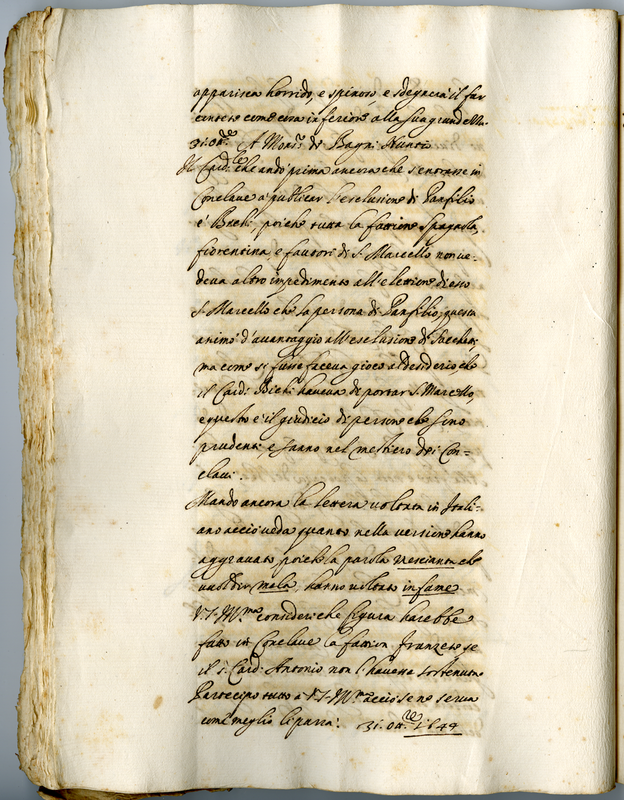 apparisca horrido, e spinoso e sdegnerà il far
come cosa inferiore alla sua grandezza
31. ott.re A Mons.r di Bagni Nuntio
Il Card.le che andò prima ancora che s'entrasse in
Conclave a publicar l'esclusione di Panfilio
è Bichi, poiche tutta la fattione Spagnola,
fiorentina, e fautori di S. Marcello non ve-
deva altro impedimento all'elettione di esso
S. Marcello che la persona di Panfilio, questa
animò d'avantaggio all'esclusione di Sacchetti
ma come si fusse faceva gioco al desiderio, che
il Card: Bichi haveva di portar S. Marcello,
e questo è il giudicio di persone che sono
prudenti e sanno nel mestiero dei Con-
clavi.
Mando ancora la lettera voltata in Itali-
ano acciò veda quanto nella versione hanno
aggravato poiche la parola mesciante che
vuol dir mala, hanno voltato infame
V.S. Ill.ma consideri che figura harebbe
fatto in Conclave la fattion franzese se
il s.r Card: Antonio non l'havesse sostenuta
Partecipo tutto a V.S. Ill.ma acciò se ne serva
come meglio li parrà: 31. ott.re 1644